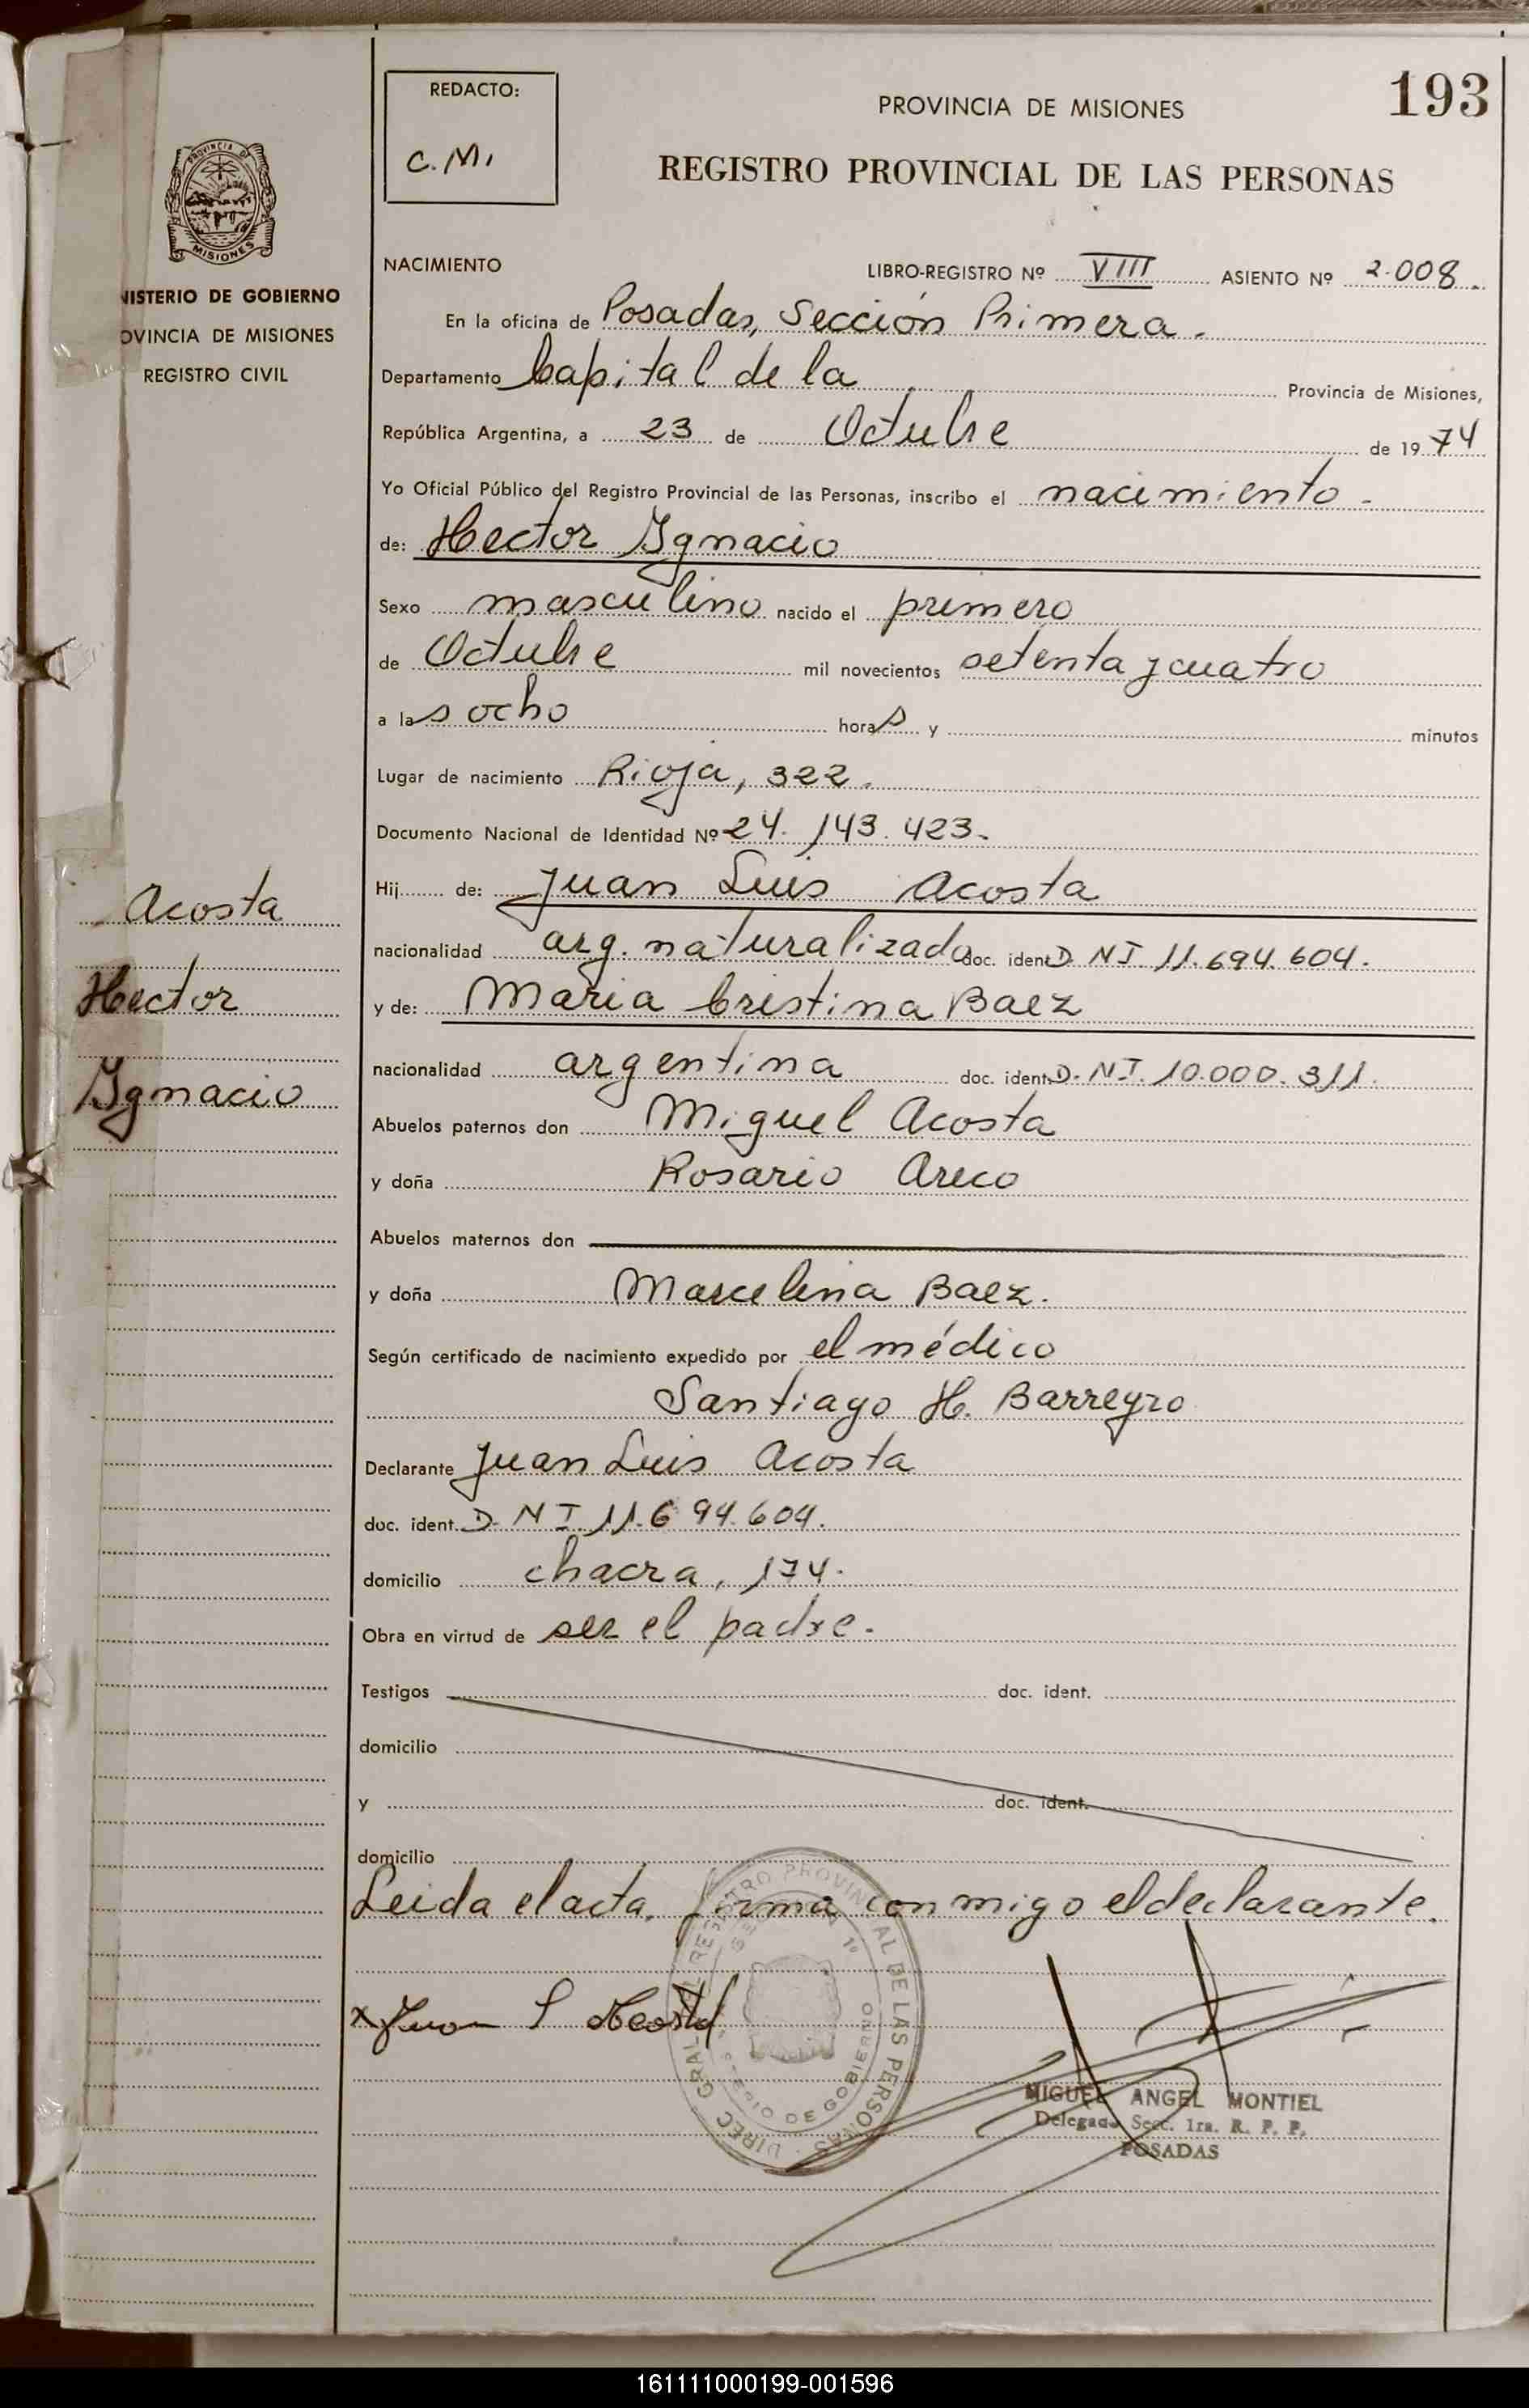 193
REDACTO:
C.M.
PROVINCIA DE MISIONES
REGISTRO PROVINCIAL DE LAS PERSONAS
MISIONES
NISTERIO DE GOBIERNO
OVINCIA DE MISIONES
REGISTRO CIVIL
Acosta
Hector
Ygnacio
NACIMIENTO LIBRO-REGISTRO Nº VIII ASIENTO Nº 2.008.
En la oficina de Posadas, Sección Primera.
Departamento Capital de la Provincia de Misiones,
República Argentina, a 23 de Octubre de 1974
Yo Oficial Público del Registro Provincial de las Personas, inscribo el nacimiento.
de: Hector Ygnacio
Sexo masculino nacido el primero
de Octubre mil novecientos setenta y cuatro
a las ocho horas y minutos
Lugar de nacimiento Rioja, 322.
Documento Nacional de Identidad Nº 24.143.423.
Hij de: Juan Luis Acosta
nacionalidad arg. naturalizado doc. ident. D.N.I. 11.694.604.
y de: Maria Cristina Baez
nacionalidad argentina doc. ident. D.N.I. 10.000.311.
Abuelos paternos don Miguel Acosta
y doña Rosario Areco
Abuelos maternos don
y doña Marcelina Baez.
Según certificado de nacimiento expedido por el médico
Santiago H. Barreyro
Declarante Juan Luis Acosta
doc. ident. D.N.I. 11.694.604.
domicilio chacra, 174.
Obra en virtud de ser el padre.
Testigos doc. ident.
domicilio
y doc. ident.
domicilio
Leida el acta, firma conmigo el declarante.
x Juan L Acosta
DIREC. GRAL. DEL REGISTRO PROVINCIAL DE LAS PERSONAS
MIGUEL ANGEL MONTIEL
Delegado Secc. 1ra. R. P. P.
POSADAS
161111000199-001596